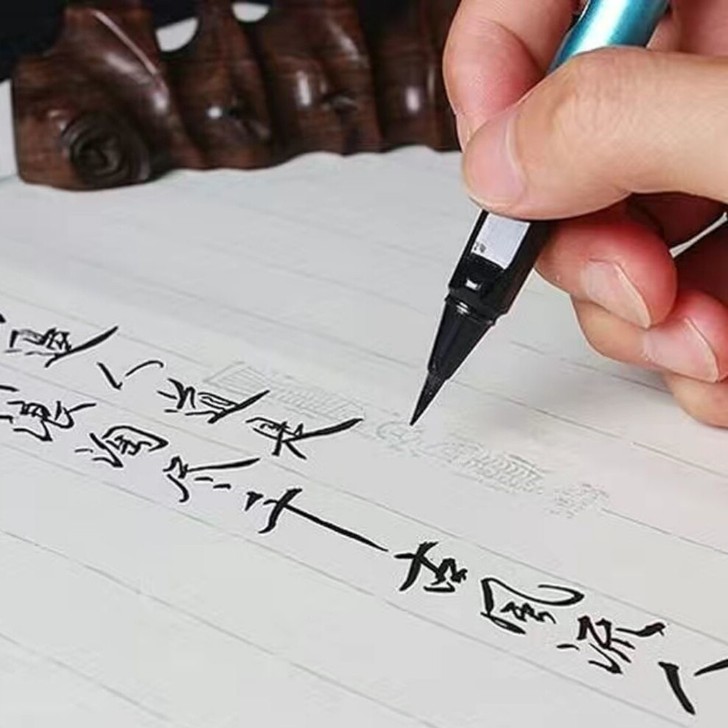 浪淘尽千古風流人
邊人道是